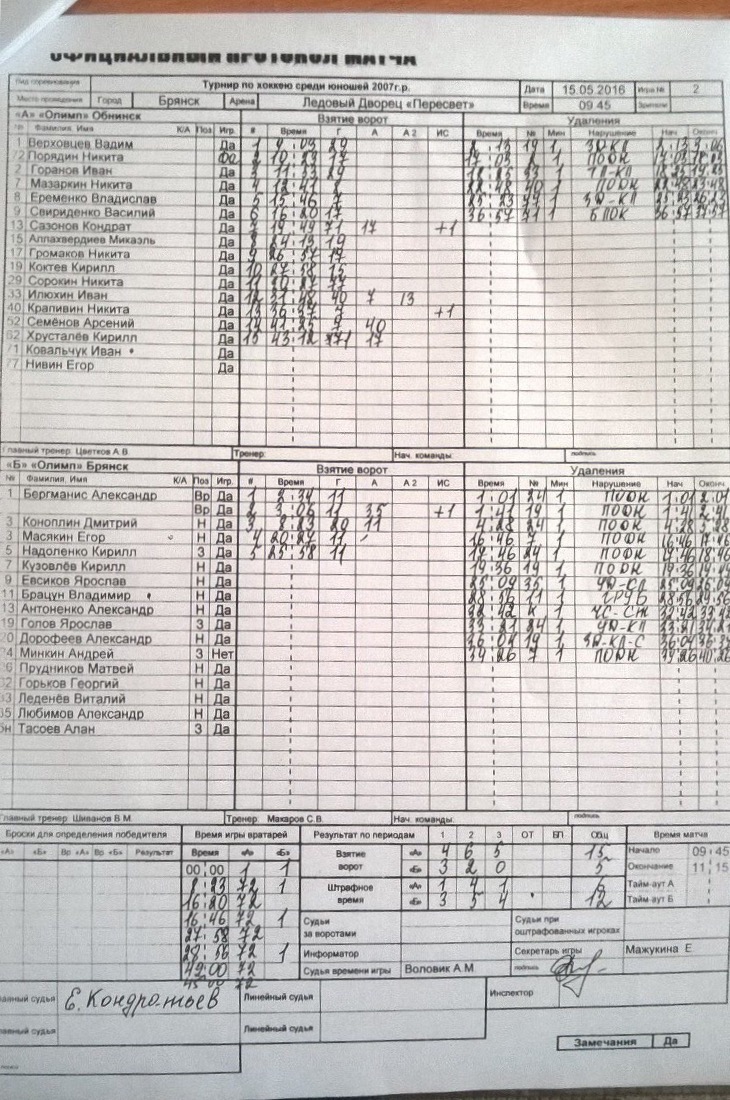 ОФИЦИАЛЬНЫЙ ПРОТОКОЛ МАТЧА
Вид соревнования Турнир по хоккею среди юношей 2007г.р. Дата 15.05.2016 Игра № 2
Место проведения Город Брянск Арена Ледовый Дворец «Пересвет» Время 09 45 Зрители
«А» «Олимп» Обнинск Взятие ворот Удаления
№ Фамилия, Имя К/А Поз Игр. # Время Г А А 2 ИС Время № Мин Нарушение Нач Оконч
1 Верховцев Вадим Да 1
Порядин Никита 2 10 23 17 17 03 2 1 ПООН
2 Горанов Иван Да 3 11 33 29
7 Мазаркин Никита Да 4 12 41 8 22 48 40 1 ПООН 22 48 23 48
8 Еременко Владислав Да 5 15 46 7
9 Свириденко Василий Да 6 16 20 17 36 57 71 1 БЛОК 36 57 37 57
13 Сазонов Кондрат Да 7 19 49 71 17 +1
15 Аллахвердиев Микаэль Да 8 24 13 19
17 Громаков Никита Да 9 26 57 17
19 Коктев Кирилл Да 10 27 58 15
29 Сорокин Никита Да 11 30 27 77
33 Илюхин Иван Да 12 31 48 40 7 13
40 Крапивин Никита Да 13 36 37 7 +1
52 Семёнов Арсений Да 14 41 25 7 40
62 Хрусталёв Кирилл Да 15 43 12 71 17
71 Ковальчук Иван Да
77 Нивин Егор Да
Главный тренер: Цветков А.В. Тренер: Нач. команды: подпись
«Б» «Олимп» Брянск Взятие ворот Удаления
№ Фамилия, Имя К/А Поз Игр. # Время Г А А 2 ИС Время № Мин Нарушение Нач Оконч
1 Бергманис Александр Вр Да 1 2 34 11 1 01 24 1 ПООН 1 01 2 01
Вр Да 2 3 06 11 35 +1 1 41 19 1 ПООН 1 41 2 41
3 Коноплин Дмитрий Н Да 3 8 23 20 11 4 28 24 1 ПООН 4 28 5 28
3 Масякин Егор Н Да 4 20 27 11 16 46 7 1 ПООН 16 46 17 46
5 Надоленко Кирилл З Да 5 25 58 11 17 46 24 1 ПООН 17 46 18 46
7 Кузовлёв Кирилл Н Да 19 36 19 1 ПООН 19 36
9 Евсиков Ярослав Н Да 25 09 35 1 25 09 26 09
11 Брацун Владимир Н Да 28 56 11 1 ГРУБ 28 56 29 56
13 Антоненко Александр Н Да 32 42 К 1 32 42 33 42
19 Голов Ярослав З Да 33 21 24 1 33 21 34 21
20 Дорофеев Александр Н Да 36 04 19 1 36 04
4 Минкин Андрей З Нет 39 26 7 1 ПООН 39 26 40 26
Прудников Матвей Н Да
Горьков Георгий Н Да
Леденёв Виталий Н Да
Любимов Александр Н Да
Тасоев Алан З Да
Главный тренер: Шиванов В.М. Тренер: Макаров С.В. Нач. команды: подпись
Броски для определения победителя Время игры вратарей Результат по периодам 1 2 3 ОТ БП Общ Время матча
«А» «Б» Вр «А» Вр «Б» Результат Время «А» «Б» Взятие ворот «А» 4 6 5 15 Начало 09 45
00 00 1 1 «Б» 3 2 0 5 Окончание 11 15
8 23 72 1 Штрафное время «А» 1 4 1 6 Тайм-аут А
16 20 72 «Б» 3 5 4 12 Тайм-аут Б
16 46 72 1 Судьи за воротами Судьи при оштрафованных игроках
27 58 72
28 56 72 1 Информатор Секретарь игры Мажукина Е
45 00 72 Судья времени игры Воловик А.М. подпись
45 00 72
Главный судья Е. Кондратьев Линейный судья Инспектор
Главный судья Линейный судья
Замечания Да